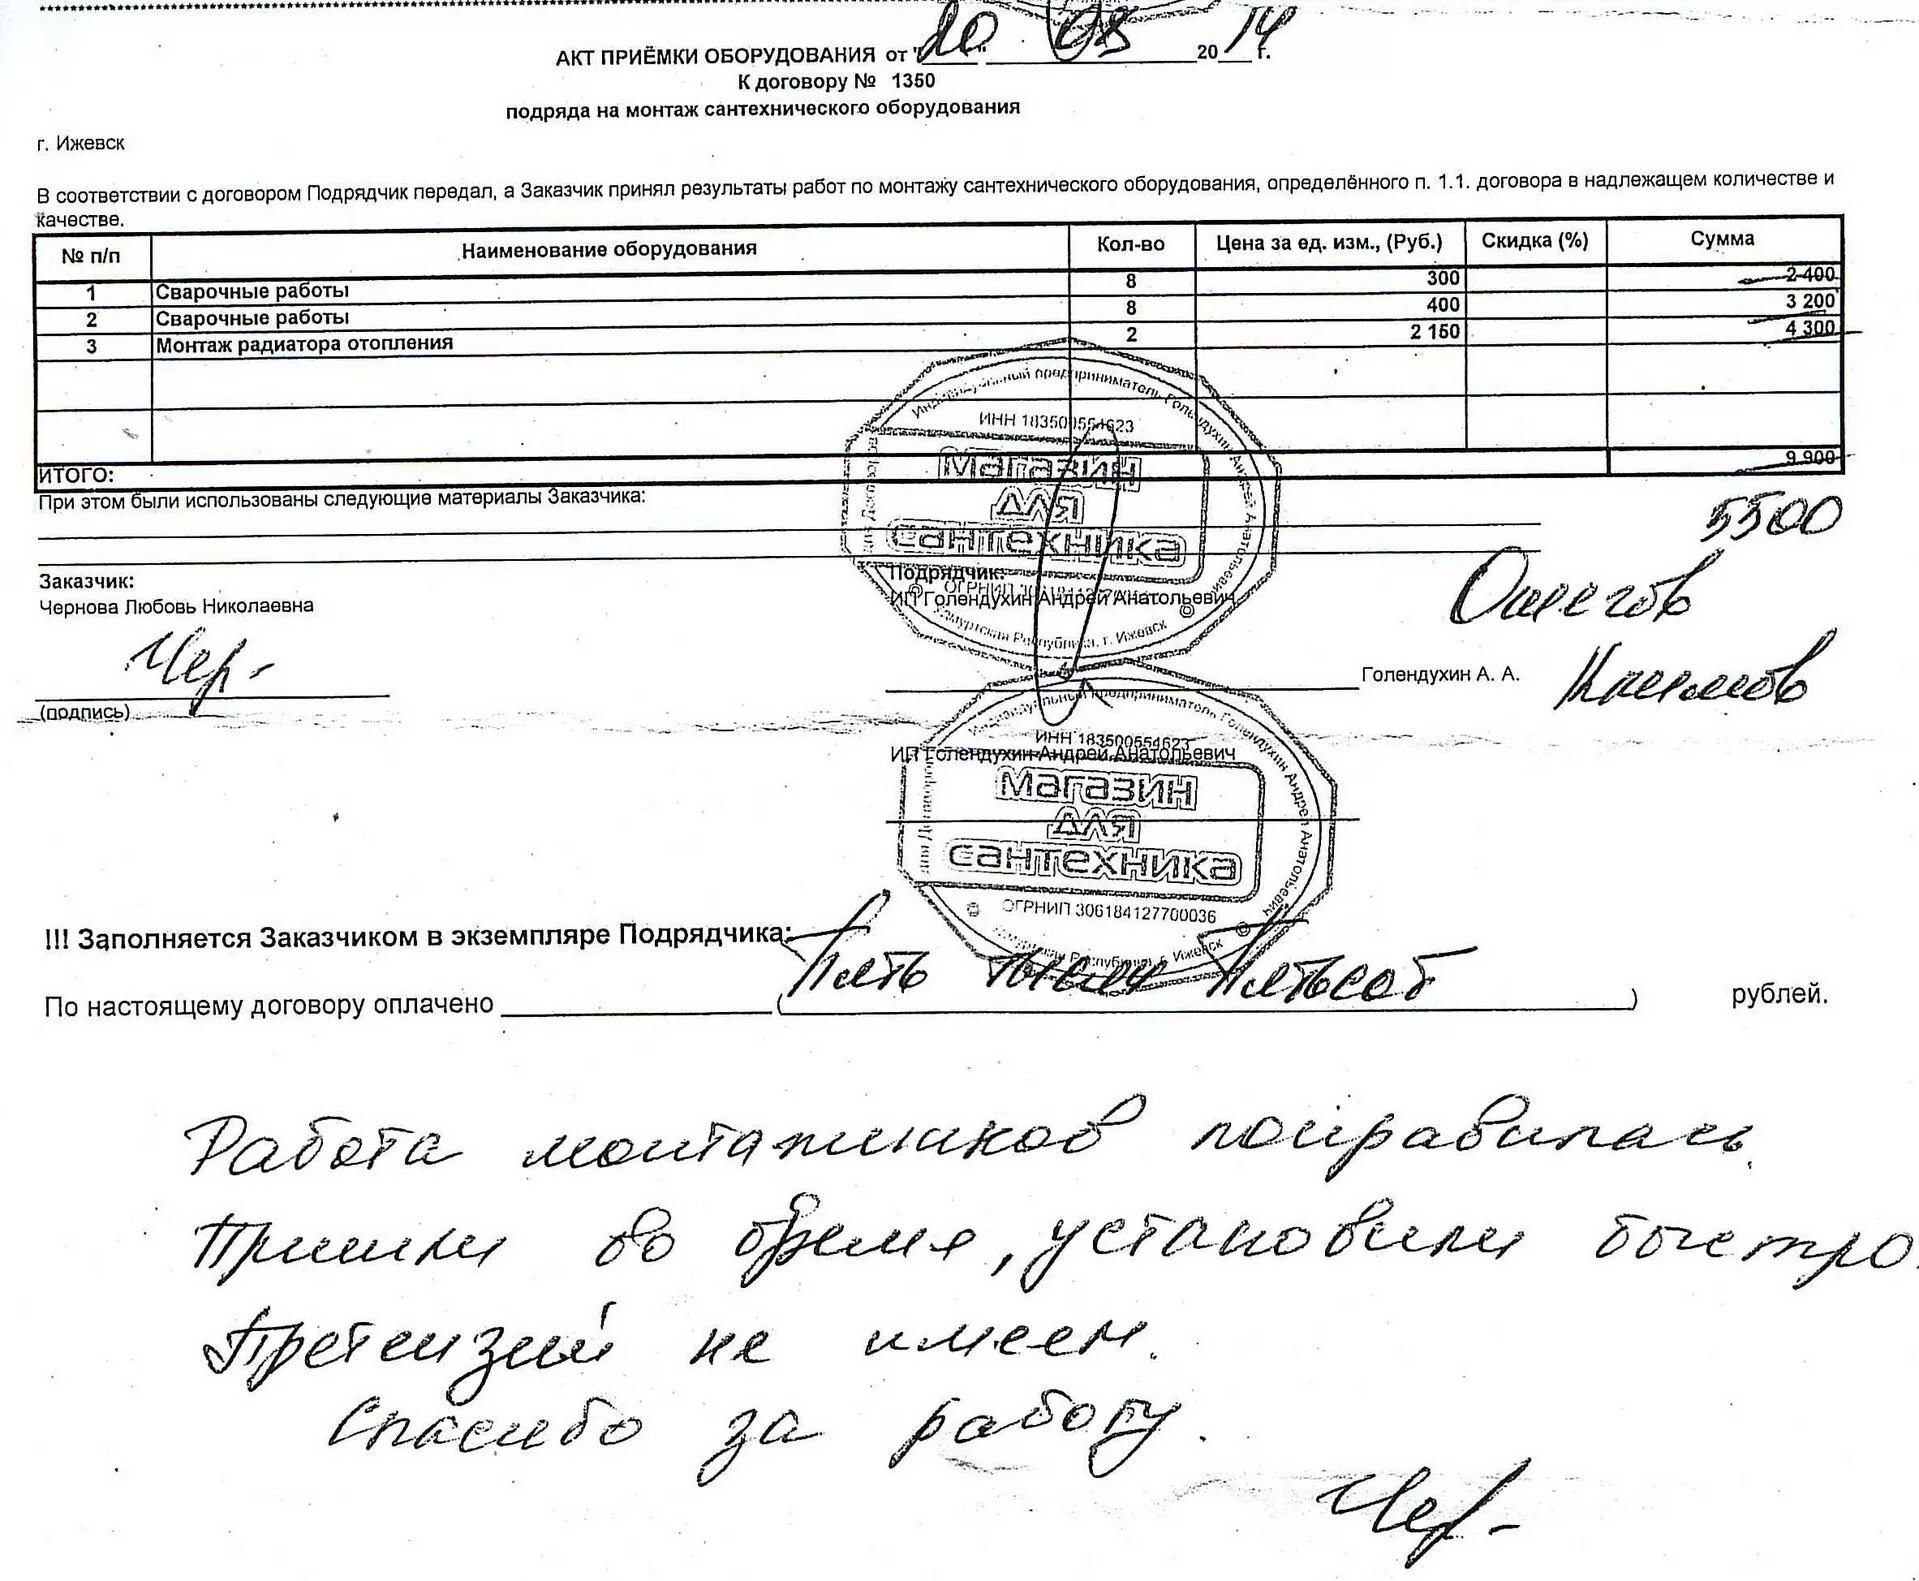 АКТ ПРИЁМКИ ОБОРУДОВАНИЯ от "20" 08 2014 г.
К договору № 1350
подряда на монтаж сантехнического оборудования
г. Ижевск
В соответствии с договором Подрядчик передал, а Заказчик принял результаты работ по монтажу сантехнического оборудования, определённого п. 1.1. договора в надлежащем количестве и
качестве.
№ п/п Наименование оборудования Кол-во Цена за ед. изм., (Руб.) Скидка (%) Сумма
1 Сварочные работы 8 300 2 400
2 Сварочные работы 8 400 3 200
3 Монтаж радиатора отопления 2 2 150 4 300
Индивидуальный предприниматель Голендухин Андрей Анатольевич
ИНН 183500554623
магазин
для
сантехника
ИТОГО: 9 900
При этом были использованы следующие материалы Заказчика:
5500
Заказчик: Подрядчик:
Чернова Любовь Николаевна ИП Голендухин Андрей Анатольевич
Удмуртская Республика, г. Ижевск
Чер.-
Голендухин А. А.
(подпись)
Индивидуальный предприниматель Голендухин Андрей Анатольевич
ИНН 183500554623
ИП Голендухин Андрей Анатольевич
магазин
для
сантехника
ОГРНИП 306184127700036
Удмуртская Республика, г. Ижевск
!!! Заполняется Заказчиком в экземпляре Подрядчика:
По настоящему договору оплачено (Пять тысяч пятьсот) рублей.
Работа монтажников понравилась.
Пришли во время, установили быстро.
Претензий не имеем.
Спасибо за работу.
Чер.-